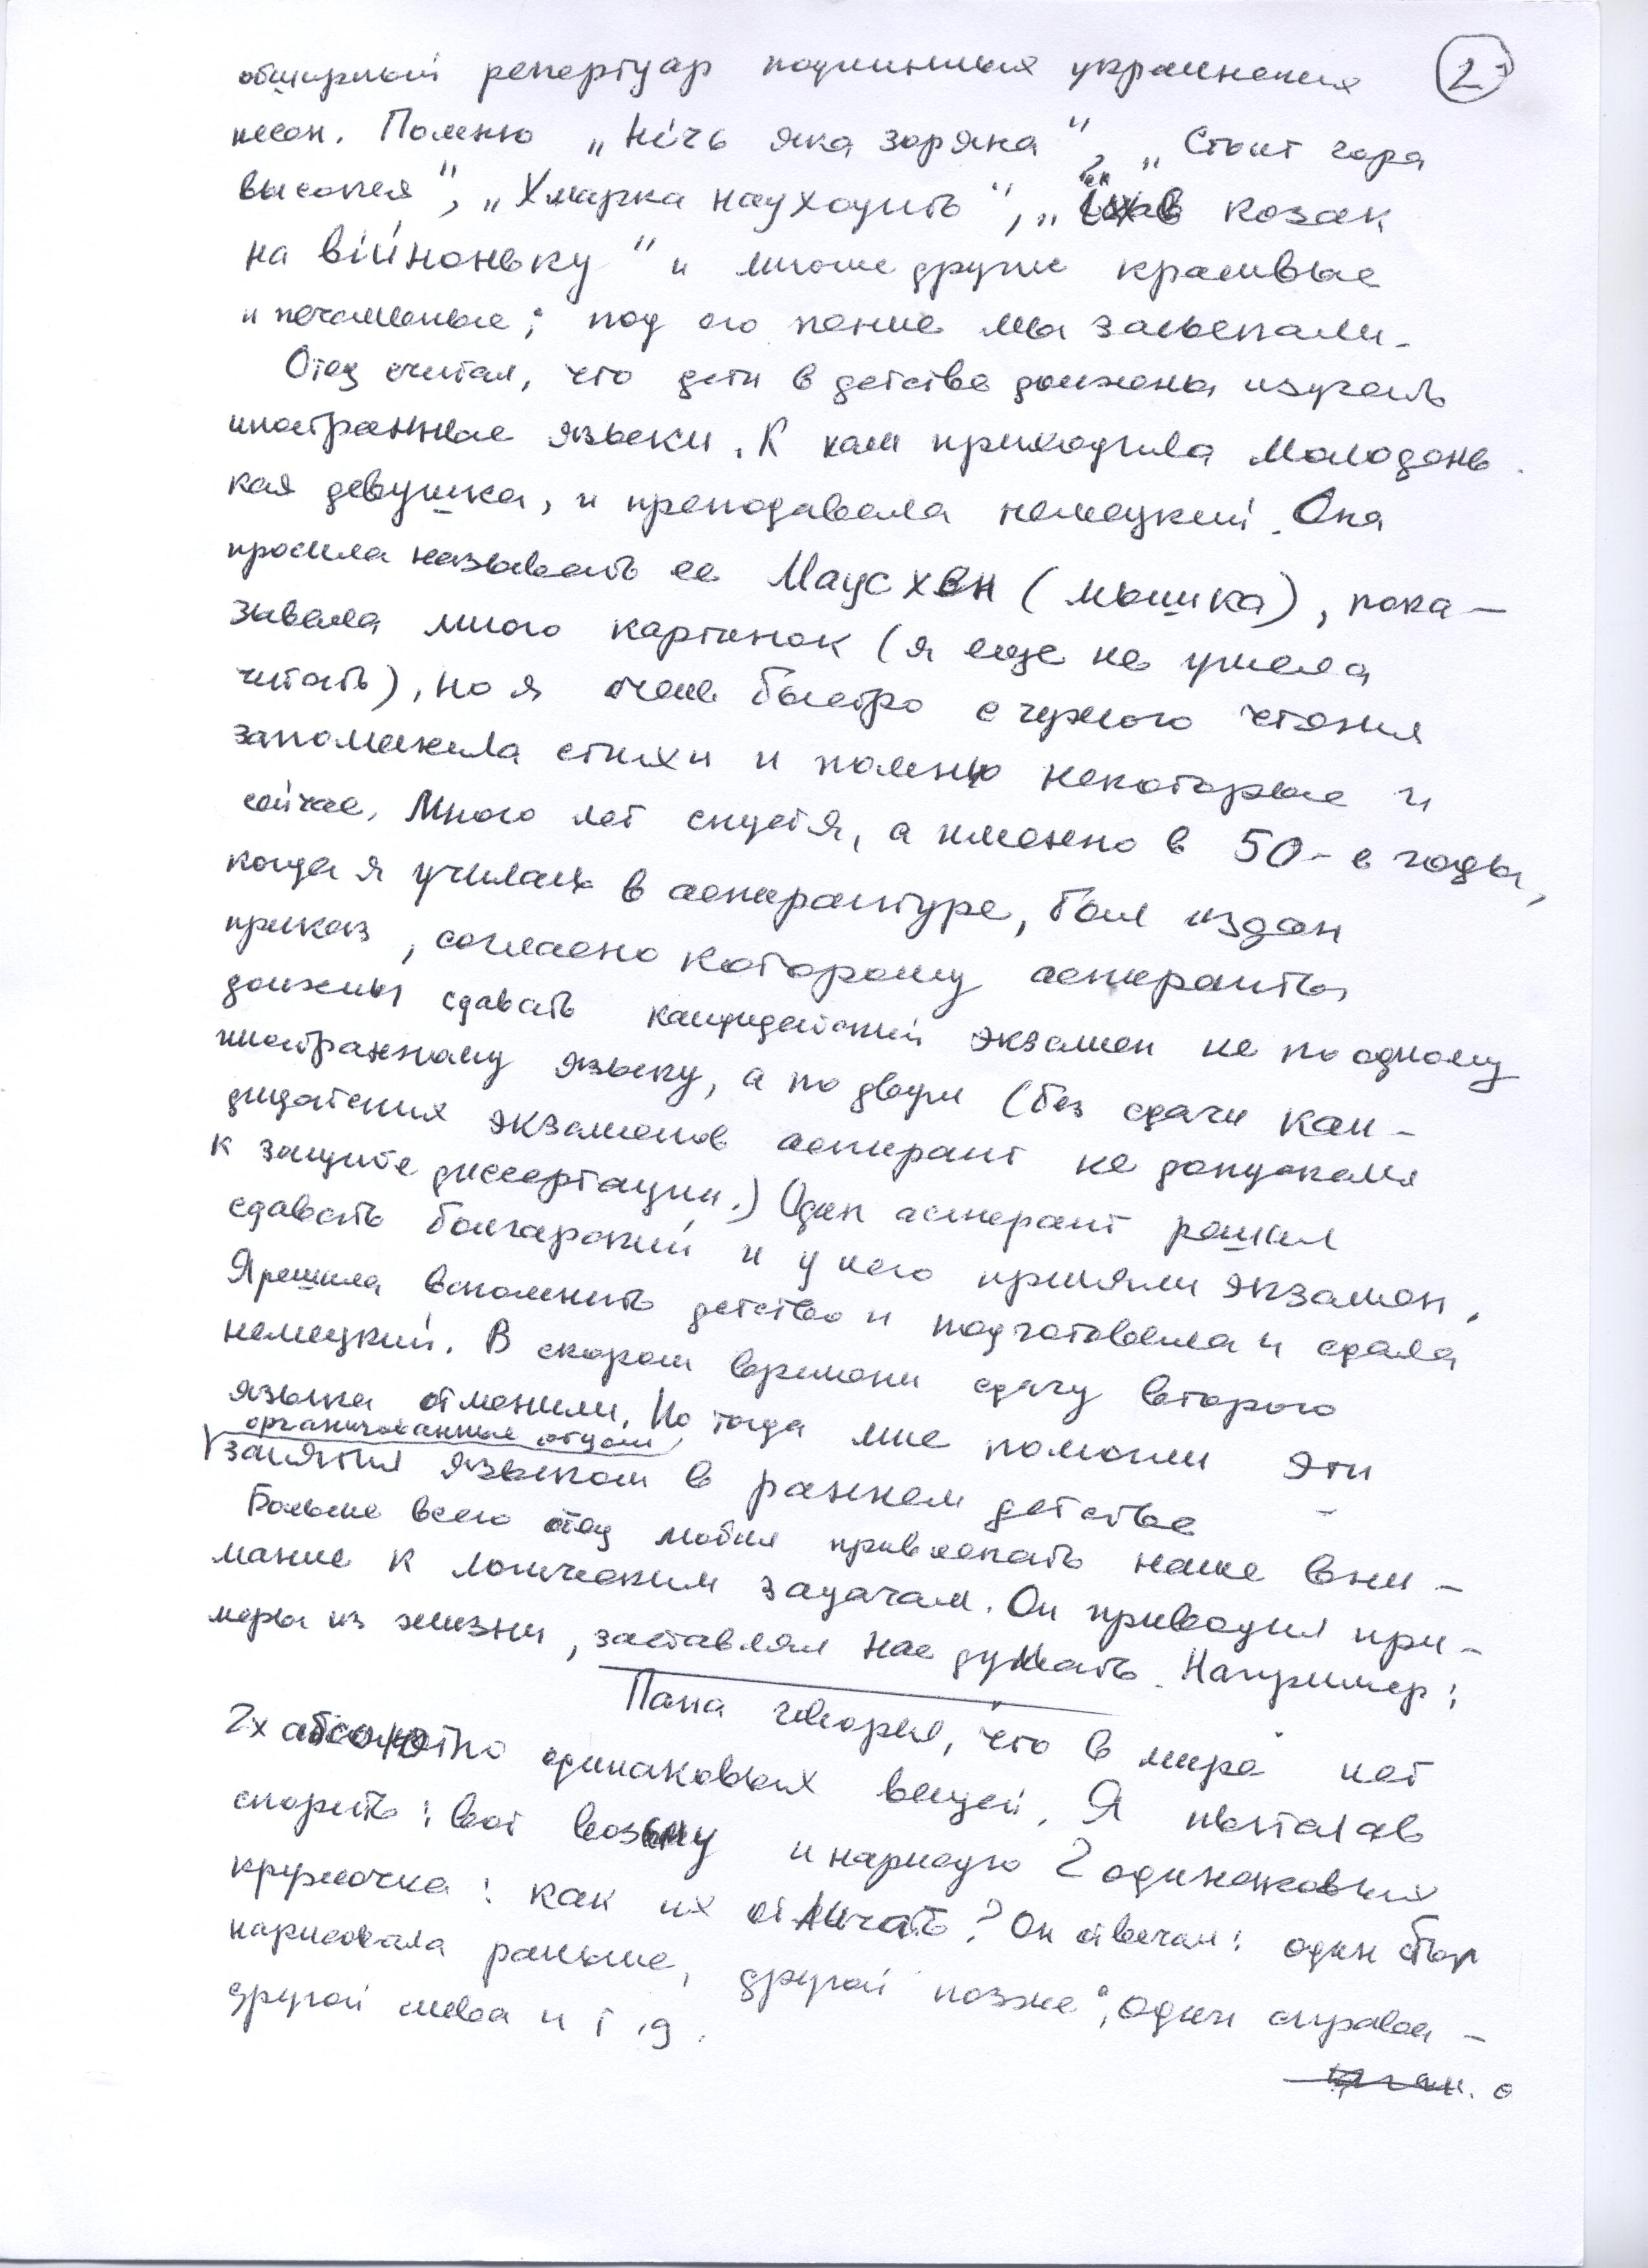 2
обширный репертуар подлинных украинских
песен. Помню „Ніч яка зоряна“, „Стоит гора
высокая“, „Хмарка надходить“, „Їхав козак
на війноньку“ и многие другие красивые
и печальные; под его пение мы засыпали.
Отец считал, что дети в детстве должны изучать
иностранные языки. К нам приходила молодень
кая девушка, и преподавала немецкий. Она
просила называть ее Маусхен (мышка), пока-
зывала много картинок (я еще не умела
читать), но я очень быстро с чужого чтения
запоминала стихи и помню некоторые и
сейчас. Много лет спустя, а именно в 50-е годы,
когда я училась в аспирантуре, был издан
приказ, согласно которому аспиранты
должны сдавать кандидатский экзамен не по одному
иностранному языку, а по двум (без сдачи кан-
дидатских экзаменов аспирант не допускался
к защите диссертации.) Один аспирант решил
сдавать болгарский и у него приняли экзамен.
Я решила вспомнить детство и подготовила и сдала
немецкий. В скором времени сдачу второго
языка отменили. Но тогда мне помогли эти
организованные отцом
занятия языком в раннем детстве
Больше всего отец любил привлекать наше вни-
мание к логическим задачам. Он приводил при-
меры из жизни, заставлял нас думать. Например:
Папа говорил, что в мире нет
2х абсолютно одинаковых вещей. Я пыталась
спорить: вот возьму и нарисую 2 одинаковых
кружочка: как их отличать? Он отвечал: один был
нарисовала раньше, другой позже; один справа -
другой слева и т.д.